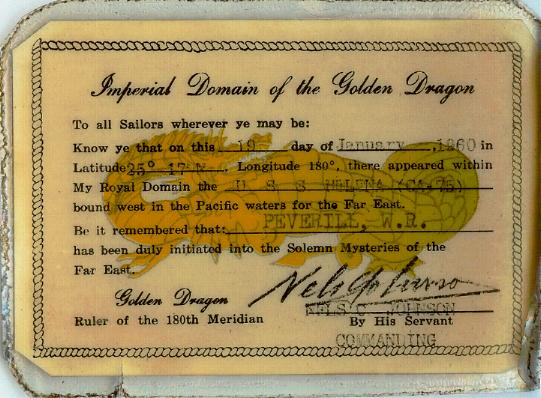 Imperial Domain of the Golden Dragon
To all Sailors wherever ye may be:
Know ye that on this 19 day of January, 1960 in
Latitude 25° 17' N. Longitude 180°, there appeared within
My Royal Domain the U. S. S HELENA (CA-75)
bound west in the Pacific waters for the Far East.
Be it remembered that: PEVERILL, W.R.
has been duly initiated into the Solemn Mysteries of the
Far East.
Nels C Johnson
Golden Dragon NELS C. JOHNSON
Ruler of the 180th Meridian By His Servant
COMMANDING